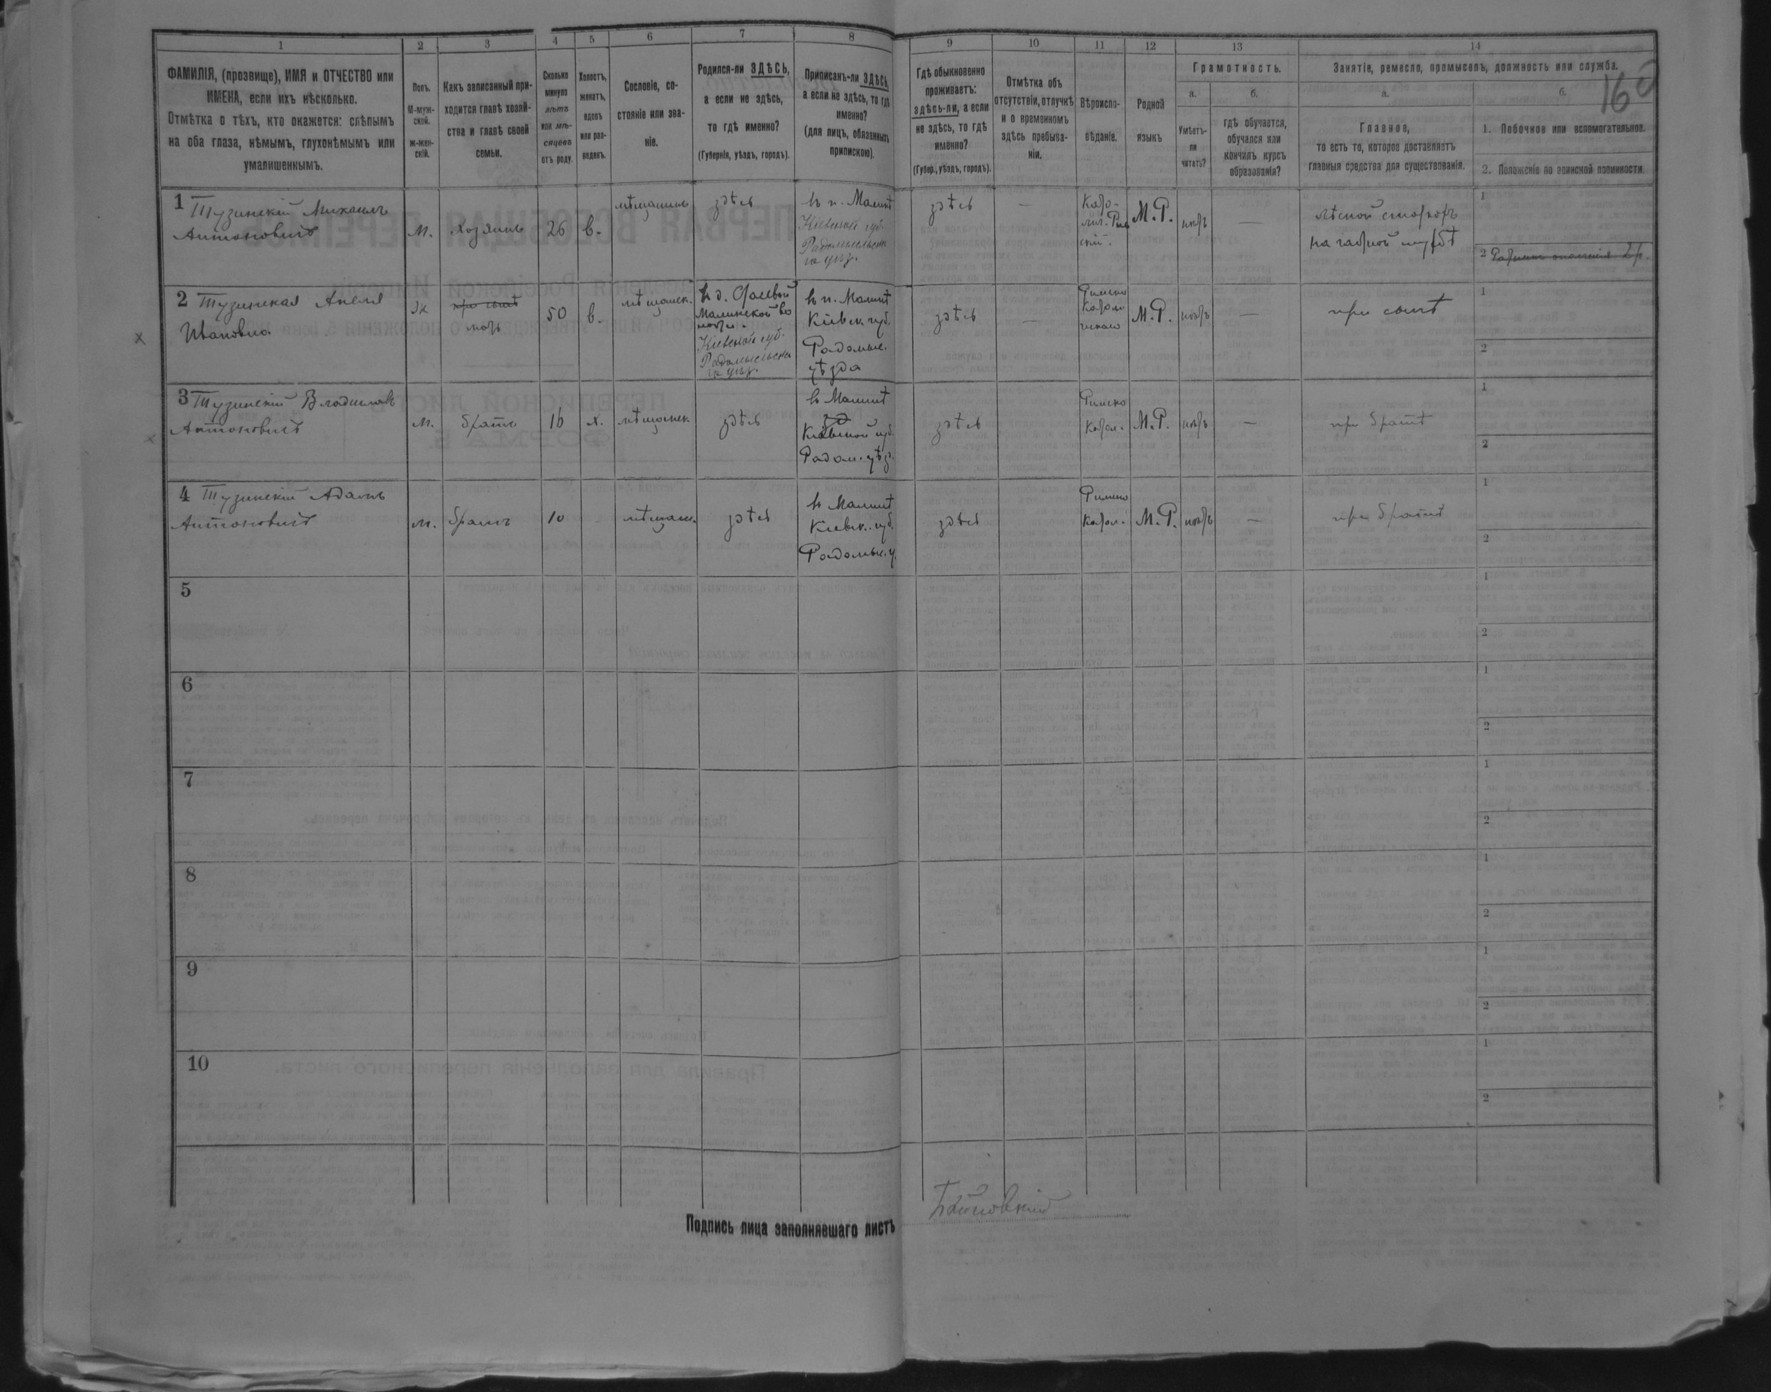 1 2 3 4 5 6 7 8 9 10 11 12 13 14
160
ФАМИЛІЯ, (прозвище), ИМЯ и ОТЧЕСТВО или
ИМЕНА, если ихъ нѣсколько.
Отмѣтка о тѣхъ, кто окажется: слѣпымъ
на оба глаза, нѣмымъ, глухонѣмымъ или
умалишеннымъ.
Полъ.
М-муж-
ской.
Ж-жен-
скій.
Какъ записанный при-
ходится главѣ хозяй-
ства и главѣ своей
семьи.
Сколько
минуло
лѣтъ
или мѣ-
сяцевъ
отъ роду.
Холостъ,
женатъ,
вдовъ
или раз-
веденъ.
Сословіе, со-
стояніе или зва-
ніе.
Родился-ли ЗДѢСЬ,
а если не здѣсь,
то гдѣ именно?
(Губернія, уѣздъ, городъ).
Приписанъ-ли ЗДѢСЬ,
а если не здѣсь, то гдѣ
именно?
(для лицъ, обязанныхъ
припискою).
Гдѣ обыкновенно
проживаетъ:
здѣсь-ли, а если
не здѣсь, то гдѣ
именно?
(Губер., уѣздъ, городъ).
Отмѣтка объ
отсутствіи, отлучкѣ
и о временномъ
здѣсь пребыва-
ніи.
Вѣроиспо-
вѣданіе.
Родной
языкъ
Грамотность.
а.
Умѣетъ-
ли
читать?
б.
гдѣ обучается,
обучался или
кончилъ курсъ
образованія?
Занятіе, ремесло, промыселъ, должность или служба.
а.
Главное,
то есть то, которое доставляетъ
главныя средства для существованія.
б.
1. Побочное или вспомогательное.
2. Положеніе по воинской повинности.
1 Тузинскій Михаилъ
Антоновичъ
м.
хозяинъ
26
в.
мѣщанинъ
здѣсь
въ м. Малинѣ
Кіевской губ.
Радомысльска
го уѣз.
здѣсь
—
Като-
лич. Рим
скій.
М.Р.
нѣтъ
—
лѣсной сторожъ
1
2
2 Тузинская Анеля
Ивановна
ж
мать
50
в.
мѣщанск.
въ д.
Малинской во
лости.
Кіевской губ.
Радомысльска
го уѣз.
въ м. Малинѣ
Кіевск. губ.
Радомыс.
уѣзда
здѣсь
—
Римско
Католи
ческаго
М.Р.
нѣтъ
—
при сынѣ
1
2
3 Тузинскій Владиславъ
Антоновичъ
м.
братъ
16
х.
мѣщанск.
здѣсь
въ Малинѣ
Кіевской губ.
Радом. уѣз.
здѣсь
Римско
Катол.
М.Р.
нѣтъ
—
при братѣ
1
2
4 Тузинскій Адамъ
Антоновичъ
м.
братъ
10
мѣщанс.
здѣсь
въ Малинѣ
Кіевск. губ.
Радомыс. у.
здѣсь
Римско
Катол.
М.Р.
нѣтъ
—
при братѣ
1
2
5
1
2
6
1
2
7
1
2
8
1
2
9
1
2
10
1
2
Подпись лица заполнявшаго листъ